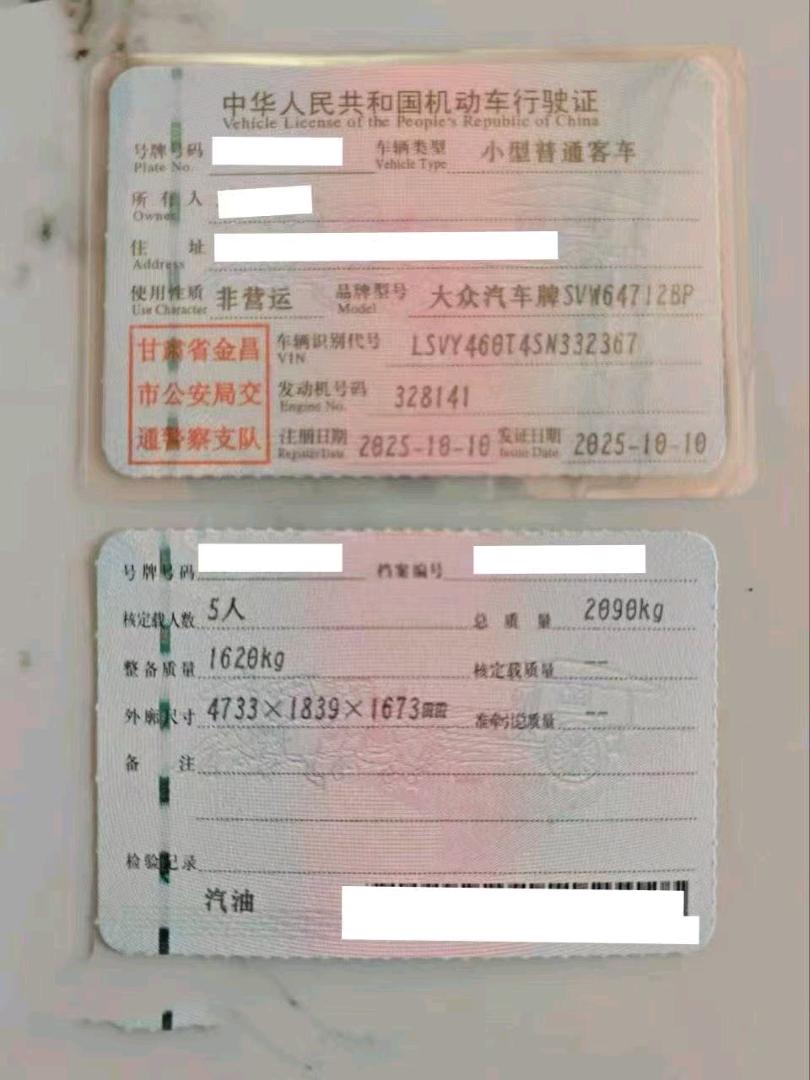 中华人民共和国机动车行驶证
Vehicle License of the People's Republic of China
号牌号码 车辆类型 小型普通客车
Plate No. Vehicle Type
所有人
Owner
住址
Address
使用性质 非营运 品牌型号 大众汽车牌SVW64712BP
Use Character Model
甘肃省金昌
市公安局交
通警察支队
车辆识别代号 LSVY460T4SN332367
VIN
发动机号码 328141
Engine No.
注册日期 2025-10-10 发证日期 2025-10-10
Register Date Issue Date
号牌号码 档案编号
核定载人数 5人 总质量 2090kg
整备质量 1620kg 核定载质量 --
外廓尺寸 4733×1839×1673㎜ 准牵引总质量 --
备注
检验记录
汽油